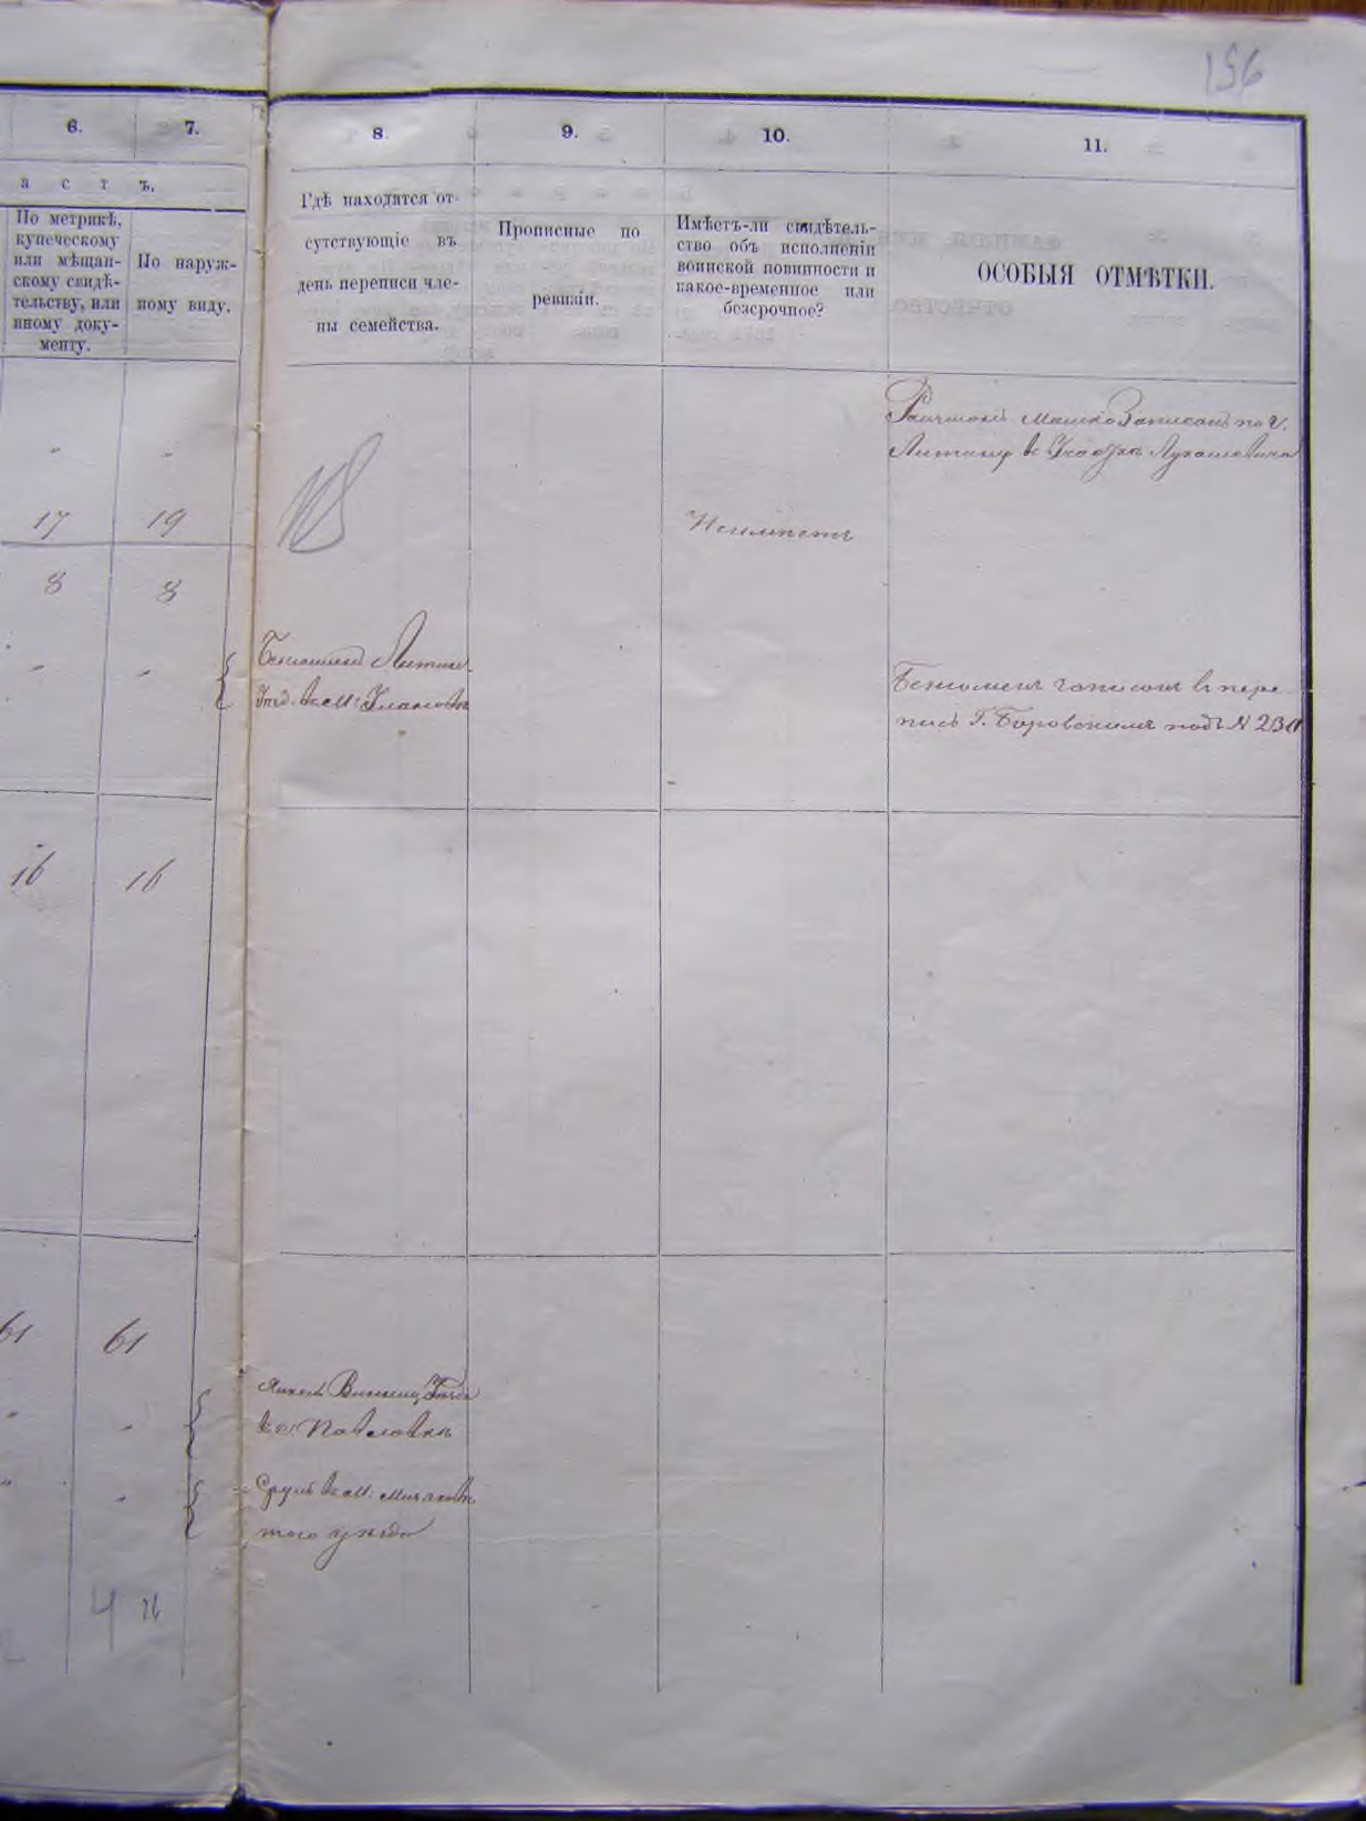 156
6.
7.
8.
9.
10.
11.
а с т ъ.
По метрикѣ,
купеческому
или мѣщан-
скому свидѣ-
тельству, или
иному доку-
менту.
По наруж-
ному виду.
Гдѣ находятся от-
сутствующіе въ
день переписи чле-
ны семейства.
Прописные по
ревизіи.
Имѣетъ-ли свидѣтель-
ство объ исполненіи
воинской повинности и
какое-временное или
безсрочное?
ОСОБЫЯ ОТМѢТКИ.
Мошко Записанъ по г.
Литину въ
17 19
Неимѣетъ
8 8
Литинс.
Уѣзд. въ м.
записанъ въ пере
пись Г. Боровскимъ подъ №
16 16
61 61
Винниц. Уѣзда
въ с. Павловкѣ
Сруль въ м.
того уѣзда
4